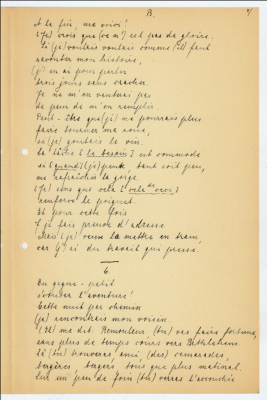 B.
A la fin, me voici!
(Je) crois que (ce n') est pas de gloire.
Si (je) voulais comme (il) faut
raconter mon histoire,
(j') en ai pour parler
trois jours sans cracher.
Je ne m'en vantais pas
de peur de m'en remplir.
Peut-être que (je) ne pourrais plus
faire tourner ma noix,
si (je) goutais le vin.
Le [le besoin] est commode
si [quand] (je) tant soit peu,
me rafraichir la gorge
(Je) sens que cela [vela de ceci]
renforce le poignet.
Et pour cette fois
je fais preuve d'adresse
mais (je) veux la mettre en train,
car (j') ai du travail qui presse.
6
En gagne-petit
s'ouvre l'aventure!
Cette nuit par chemin
(je) rencontrais mon voisin
(Il) me dit: Remouleur (tu) vas faire fortune,
sans plus de temps cours vers Bethléhem.
Là (tu) trouveras, ami, (des) camarades,
bergères, bergers tous que plus matinal.
Sur un peu de foin (tu) verras l'accouchée